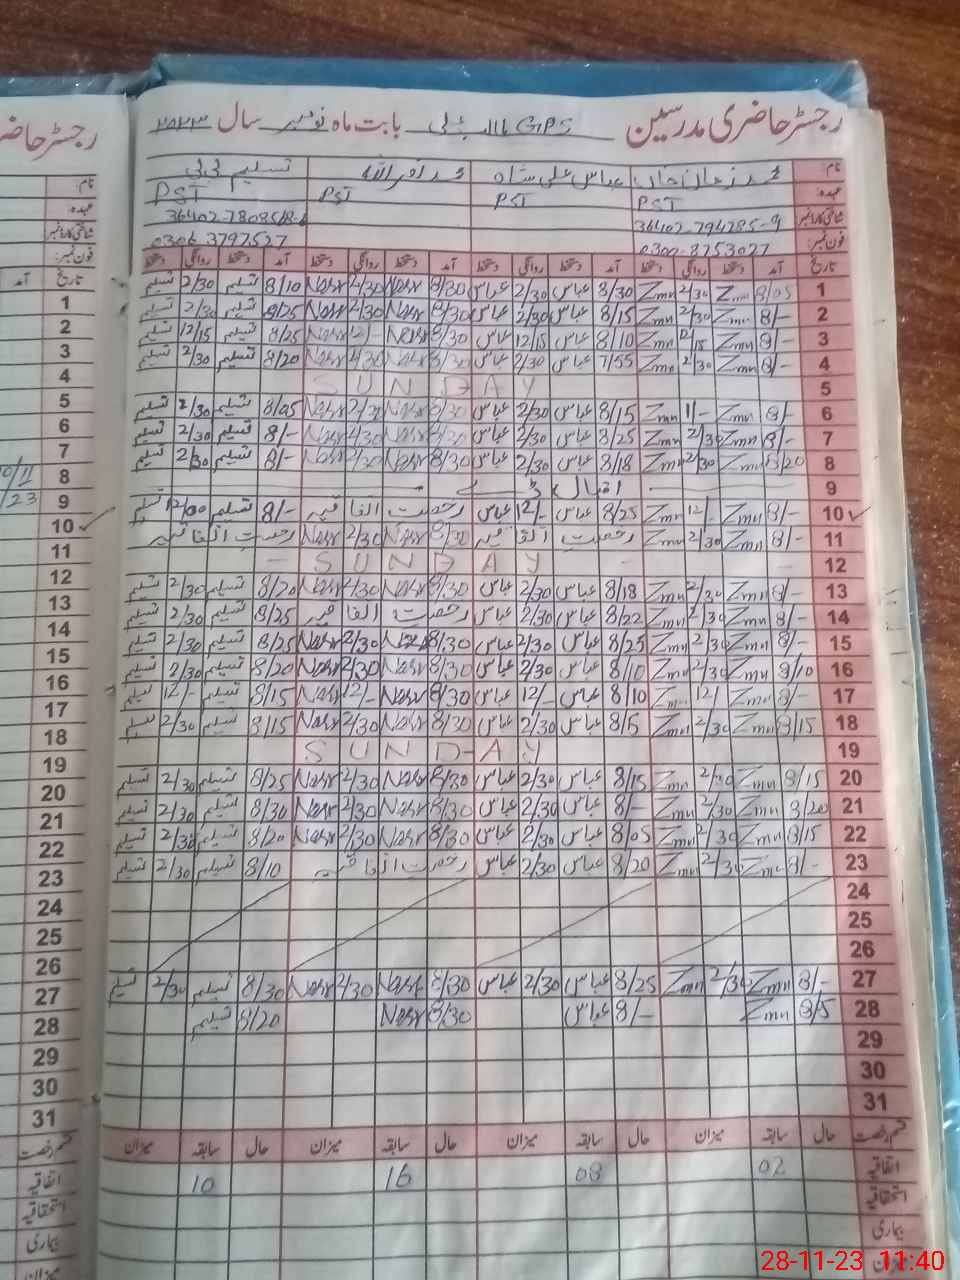 رجسٹر حاضری مدرسین GPS بابت ماہ نومبر سال ۲۰۲۳
نام: محمد زمان خاں عباس علی شاہ محمد نصراللہ تسلیم بی بی
عہدہ: PST PST PST PST
شناختی کارڈ نمبر
فون نمبر: 0300-8753027 0306-3797527
تاریخ آمد دستخط روانگی دستخط آمد دستخط روانگی دستخط آمد دستخط روانگی دستخط آمد دستخط روانگی دستخط
1 8/05 Zmn 2/30 Zmn 8/30 عباس 2/30 عباس 8/30 Nasr 2/30 Nasr 8/10 تسلیم 2/30 تسلیم
2 8/- Zmn 2/30 Zmn 8/15 عباس 2/30 عباس 8/30 Nasr 2/30 Nasr 8/25 تسلیم 2/30 تسلیم
3 8/- Zmn 12/15 Zmn 8/10 عباس 12/15 عباس 8/30 Nasr 12/- Nasr 8/25 تسلیم 12/15 تسلیم
4 8/- Zmn 2/30 Zmn 7/55 عباس 2/30 عباس 8/30 Nasr 2/30 Nasr 8/20 تسلیم 2/30 تسلیم
5 SUNDAY
6 8/- Zmn 1/- Zmn 8/15 عباس 2/30 عباس 8/30 Nasr 2/30 Nasr 8/05 تسلیم 2/30 تسلیم
7 8/- Zmn 2/30 Zmn 8/25 عباس 2/30 عباس 8/30 Nasr 2/30 Nasr 8/- تسلیم 2/30 تسلیم
8 8/20 Zmn 2/30 Zmn 8/18 عباس 2/30 عباس 8/30 Nasr 2/30 Nasr 8/- تسلیم 2/30 تسلیم
9 اقبال ڈے
10 8/- Zmn 12/- Zmn 8/25 عباس 12/- عباس رخصت اتفاقیہ 8/- تسلیم 12/00 تسلیم
11 8/- Zmn 2/30 Zmn رخصت اتفاقیہ 8/30 Nasr 2/30 Nasr رخصت اتفاقیہ
12 SUNDAY
13 8/- Zmn 2/30 Zmn 8/18 عباس 2/30 عباس 8/30 Nasr 2/30 Nasr 8/20 تسلیم 2/30 تسلیم
14 8/- Zmn 2/30 Zmn 8/22 عباس 2/30 عباس رخصت اتفاقیہ 8/25 تسلیم 2/30 تسلیم
15 8/- Zmn 2/30 Zmn 8/25 عباس 2/30 عباس 8/30 Nasr 2/30 Nasr 8/25 تسلیم 2/30 تسلیم
16 8/10 Zmn 2/30 Zmn 8/10 عباس 2/30 عباس 8/30 Nasr 2/30 Nasr 8/20 تسلیم 2/30 تسلیم
17 8/- Zmn 12/ Zmn 8/10 عباس 12/- عباس 8/30 Nasr 12/- Nasr 8/15 تسلیم 12/- تسلیم
18 8/15 Zmn 2/30 Zmn 8/5 عباس 2/30 عباس 8/30 Nasr 2/30 Nasr 8/15 تسلیم 2/30 تسلیم
19 SUNDAY
20 8/15 Zmn 2/30 Zmn 8/15 عباس 2/30 عباس 8/30 Nasr 2/30 Nasr 8/25 تسلیم 2/30 تسلیم
21 8/20 Zmn 2/30 Zmn 8/- عباس 2/30 عباس 8/30 Nasr 2/30 Nasr 8/30 تسلیم 2/30 تسلیم
22 8/15 Zmn 2/30 Zmn 8/05 عباس 2/30 عباس 8/30 Nasr 2/30 Nasr 8/20 تسلیم 2/30 تسلیم
23 8/- Zmn 2/30 Zmn 8/20 عباس 2/30 عباس رخصت اتفاقیہ 8/10 تسلیم 2/30 تسلیم
24
25
26
27 8/- Zmn 2/30 Zmn 8/25 عباس 2/30 عباس 8/30 Nasr 2/30 Nasr 8/30 تسلیم 2/30 تسلیم
28 8/5 Zmn 8/- عباس 8/30 Nasr 8/20 تسلیم
29
30
31
قسم رخصت حال سابقہ میزان حال سابقہ میزان حال سابقہ میزان حال سابقہ میزان
اتفاقیہ 02 08 16 10
استحقاقیہ
بیماری
میزان
رجسٹر حاضری
نام:
عہدہ:
شناختی کارڈ نمبر
فون نمبر:
تاریخ آمد
1
2
3
4
5
6
7
8
9
10
11
12
13
14
15
16
17
18
19
20
21
22
23
24
25
26
27
28
29
30
31
قسم رخصت
اتفاقیہ
استحقاقیہ
بیماری
میزان
28-11-23 11:40